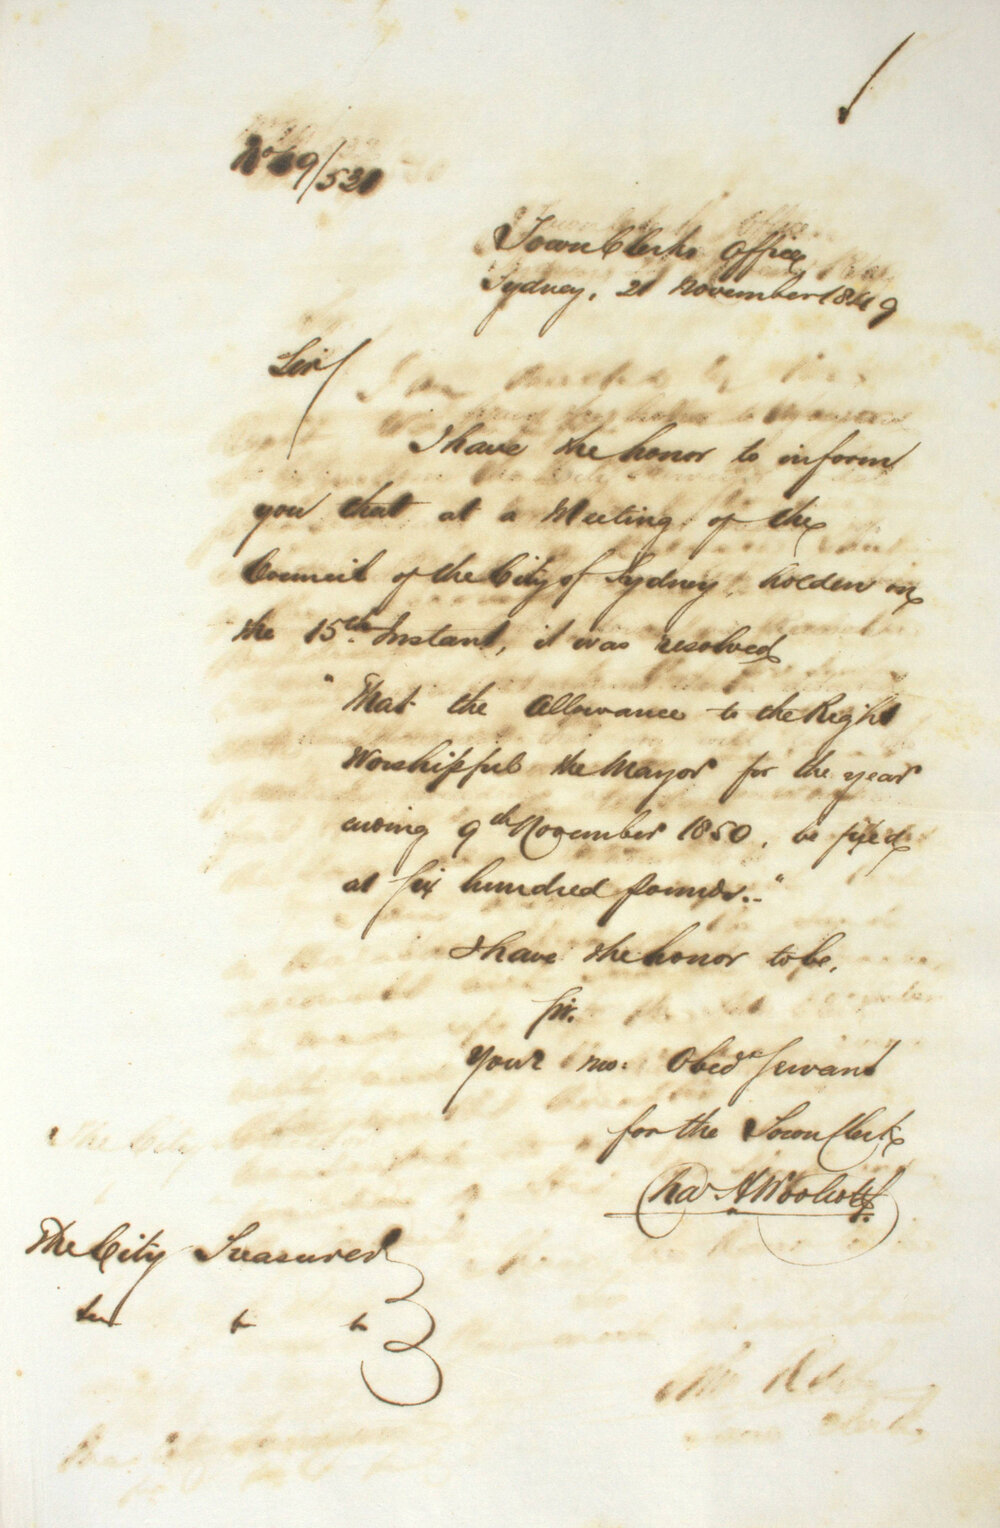 No 49/521
Town Clerks Office
Sydney, 21 November 1849
Sir
I have the honor to inform
you that at a Meeting of the
Council of the City of Sydney, holden on
the 15th Instant, it was resolved
"That the Allowance to the Right
Worshipful the Mayor for the year
ending 9th November 1850, be fixed
at Six hundred pounds.."
I have the honor to be,
Sir,
Your mo: Obedt Servant
for the Town Clerk
Chas H Woolcott
The City Treasurer
&c &c &c